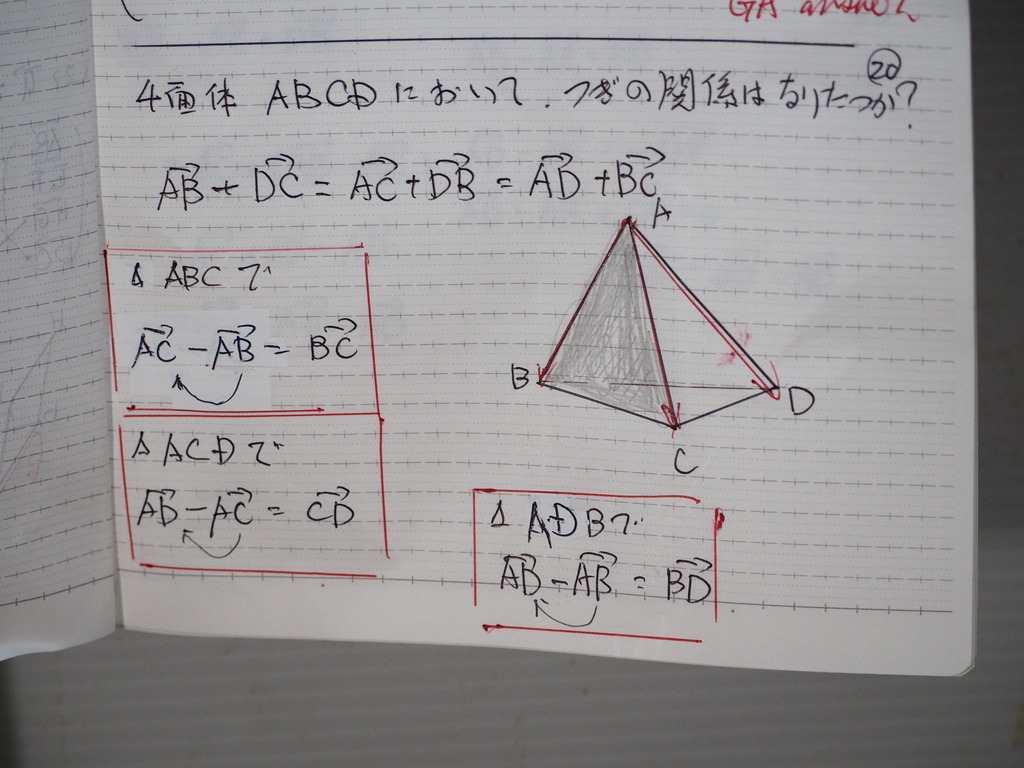 GA answer
⑳
4面体 ABCDにおいて、つぎの関係はなりたつか?
$\overrightarrow{AB} + \overrightarrow{DC} = \overrightarrow{AC} + \overrightarrow{DB} = \overrightarrow{AD} + \overrightarrow{BC}$
A
B
D
C
Δ ABC で
$\overrightarrow{AC} - \overrightarrow{AB} = \overrightarrow{BC}$
Δ ACD で
$\overrightarrow{AD} - \overrightarrow{AC} = \overrightarrow{CD}$
Δ ADB で
$\overrightarrow{AB} - \overrightarrow{AB} = \overrightarrow{BD}$